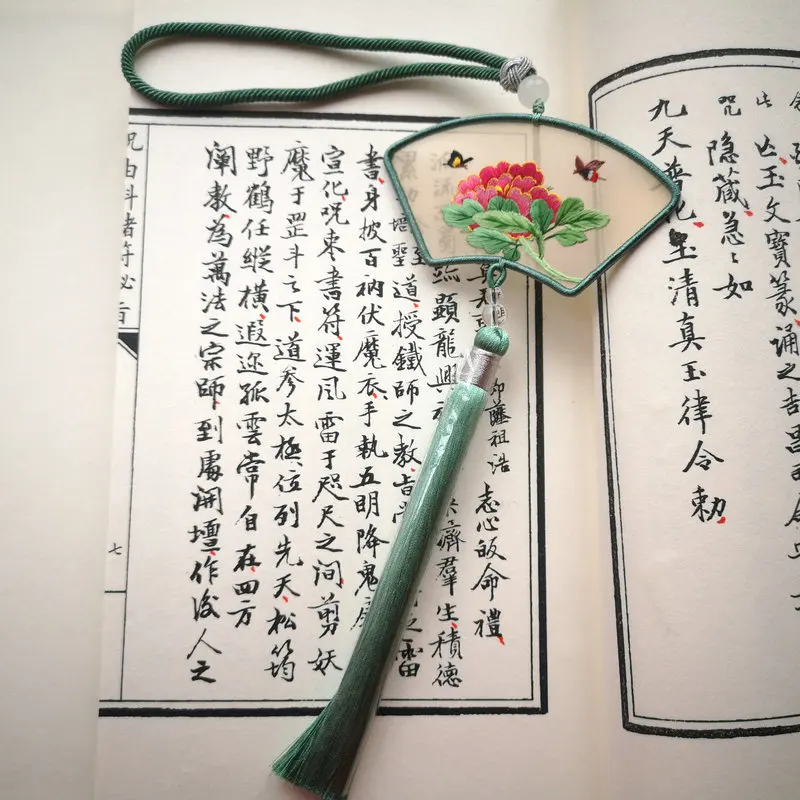 玉文寶篆誦之
此
咒隱藏急〻如
九天普化玉清真玉律令勅
薩祖浩 志心皈命禮
顯龍興
濟群生積德
聖道授鐵師之教
之雷
書身披百衲伏魔衣手執五明降鬼
宣化咒棗書符運風雷于咫尺之间剪妖
魔于罡斗之下道參太極位列先天松筠
野鶴任縱橫遐迩孤雲常自在四方
闡教為萬法之宗師到處開壇作後人之
由科諸符
七